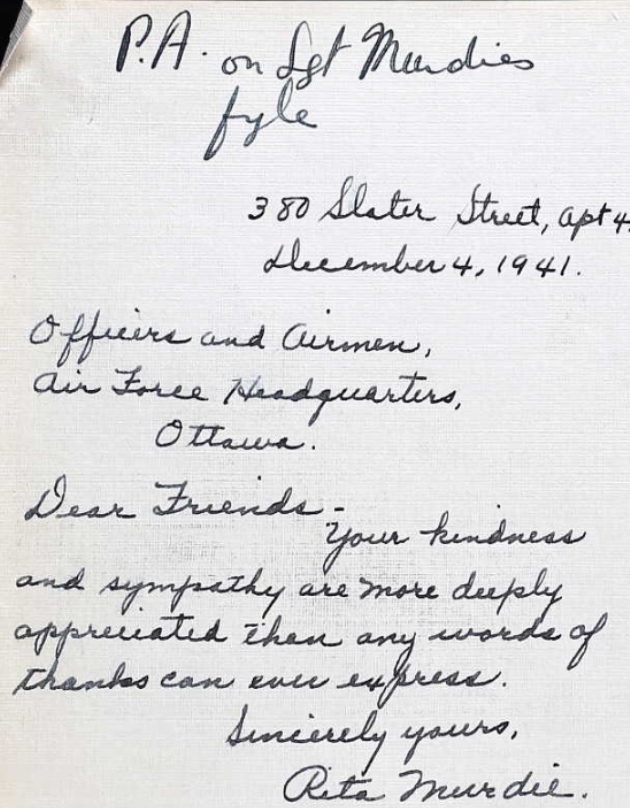 P.A. on Sgt Murdies
fyle
380 Slater Street, Apt 4.
December 4, 1941.
Officers and Airmen,
Air Force Headquarters,
Ottawa.
Dear Friends -
Your kindness
and sympathy are more deeply
appreciated than any words of
thanks can ever express.
Sincerely yours,
Rita Murdie.